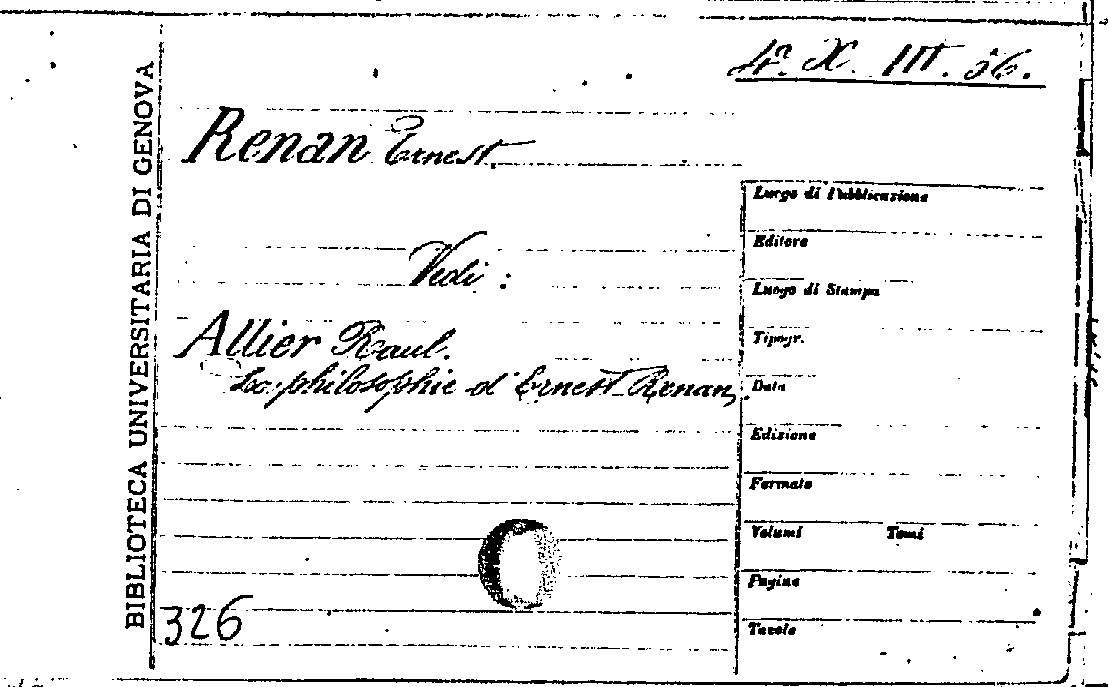 4ª. X. III. 56.
BIBLIOTECA UNIVERSITARIA DI GENOVA
Renan Ernest.
Vedi :
Allier Raul.
La philosophie d'Ernest Renan,
326
Luogo di Pubblicazione
Editore
Luogo di Stampa
Tipogr.
Data
Edizione
Formato
Volumi Tomi
Pagine
Tavole